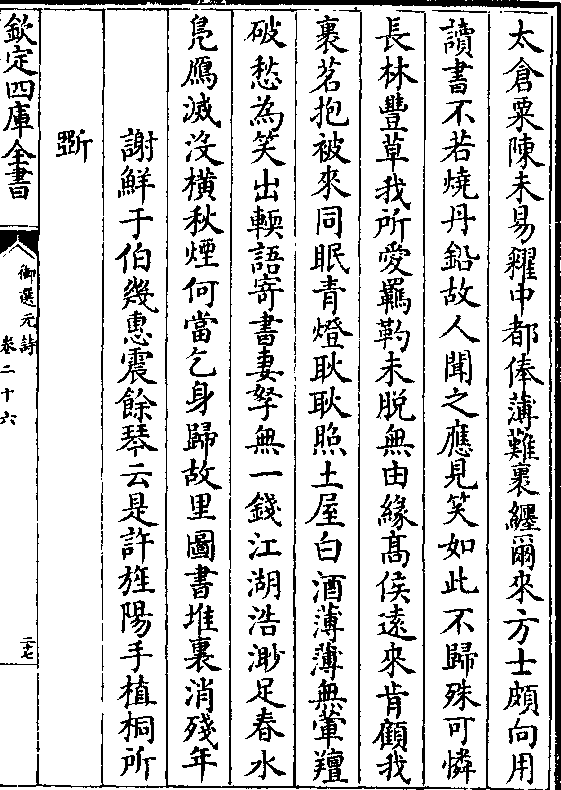 太倉粟陳未易糴中都俸薄難裹纒爾來方士頗向用
讀書不若燒丹鉛故人聞之應見笑如此不歸殊可憐
長林豐草我所愛羈靮未脱無由緣髙侯逺來肯顧我
裹茗抱被來同眠青燈耿耿照土屋白酒薄薄無葷羶
破愁為笑出輭語寄書妻孥無一錢江湖浩渺足春水
鳬鴈滅没橫秋煙何當乞身歸故里圖書堆裏消殘年
謝鮮于伯幾惠震餘琴云是許旌陽手植桐所
斲
欽定四庫全書
御選元詩
卷二十六
二七